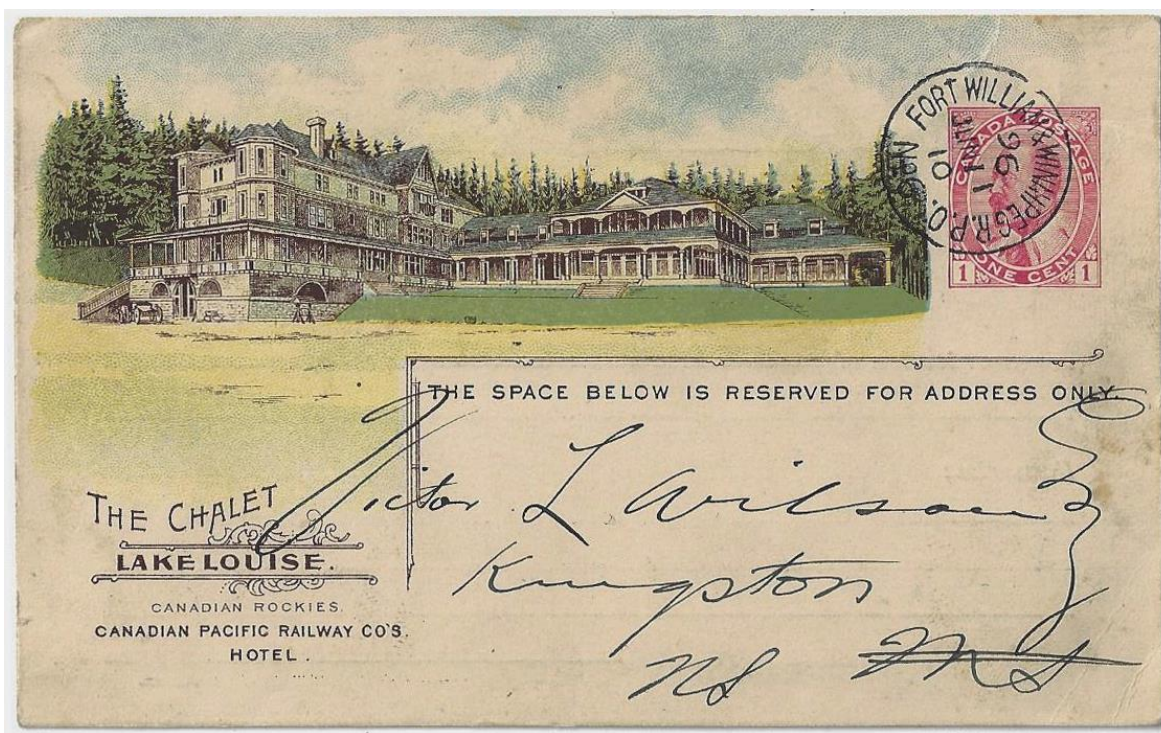 FORT WILLIAM & WINNIPEG R.P.O.
CANADA POSTAGE
1 ONE CENT 1
THE SPACE BELOW IS RESERVED FOR ADDRESS ONLY.
Victor L Wilson
Kingston
NS
THE CHALET
LAKE LOUISE.
CANADIAN ROCKIES.
CANADIAN PACIFIC RAILWAY CO'S.
HOTEL.